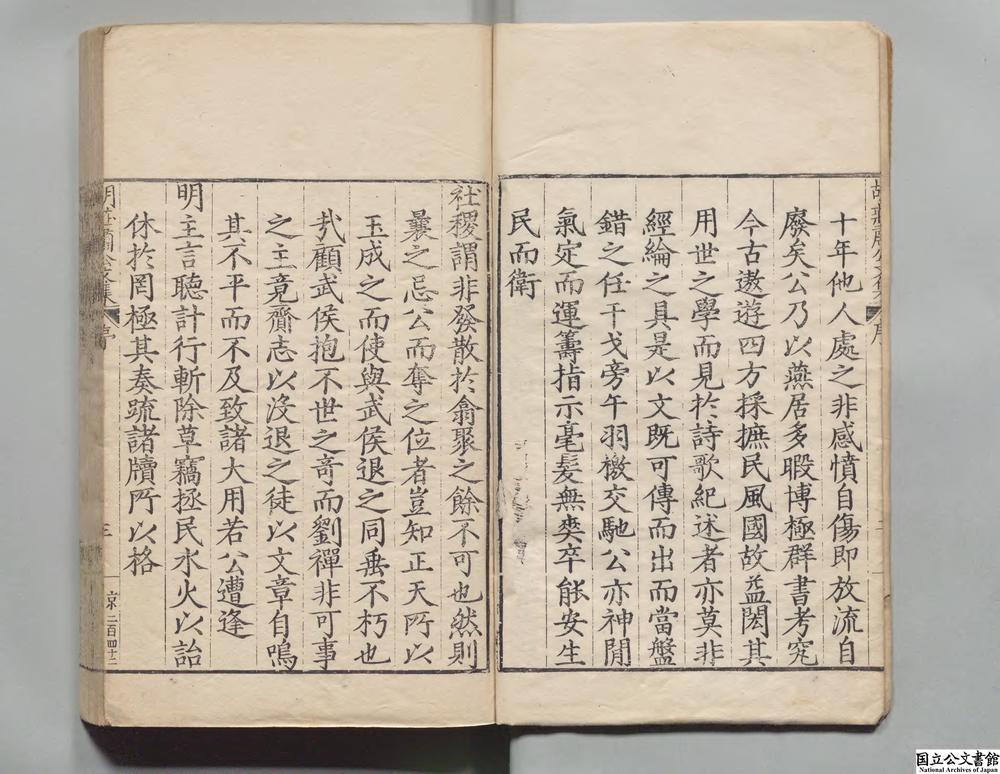 十年他人處之非感憤自傷即放流自
廢矣公乃以燕居多暇博極群書考究
今古遨遊四方採摭民風國故益閎其
用世之學而見扵詩歌紀述者亦莫非
經綸之具是以文既可傳而出而當盤
錯之任干戈旁午羽檄交馳公亦神閒
氣定而運籌指示毫髮無爽卒能安生
民而衛
社稷謂非發散於翕聚之餘不可也然則
曩之忌公而奪之位者豈知正天所以
玉成之而使與武侯退之同垂不朽也
㢤顧武侯抱不世之奇而劉禪非可事
之主竟齎志以没退之徒以文章自鳴
其不平而不及致諸大用若公遭逢
明主言聽計行斬除草竊拯民水火以詒
休於罔極其奏䟽諸牘所以格
序
三
京二百四十二
国立公文書館
National Archives of Japan